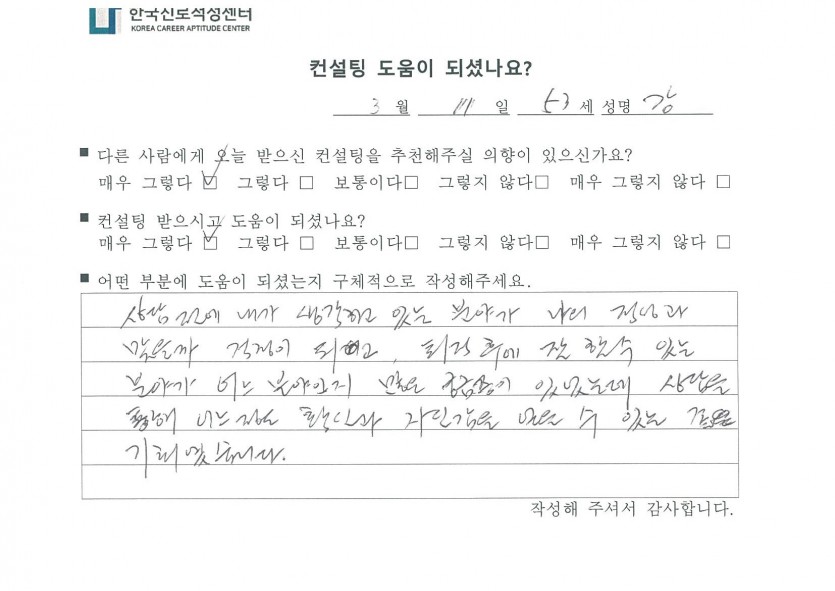 한국진로적성센터
KOREA CAREER APTITUDE CENTER
컨설팅 도움이 되셨나요?
3 월 11 일 53 세 성명 강
■ 다른 사람에게 오늘 받으신 컨설팅을 추천해주실 의향이 있으신가요?
매우 그렇다 ☑ 그렇다 □ 보통이다□ 그렇지 않다□ 매우 그렇지 않다 □
■ 컨설팅 받으시고 도움이 되셨나요?
매우 그렇다 ☑ 그렇다 □ 보통이다□ 그렇지 않다□ 매우 그렇지 않다 □
■ 어떤 부분에 도움이 되셨는지 구체적으로 작성해주세요.
상담 전에 내가 생각하고 있는 분야가 나의 적성과
맞을까 걱정이 되었고, 퇴직 후에 잘 할수 있는
분야가 어느 분야인지 많은 궁금증이 있었는데 상담을
통해 어느 정도 확신과 자신감을 얻을 수 있는
기회였습니다.
작성해 주셔서 감사합니다.